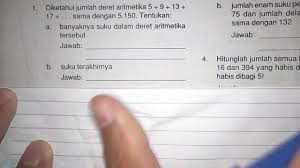 1. Diketahui jumlah deret aritmetika 5 + 9 + 13 +
17 + . . . sama dengan 5.150. Tentukan:
a. banyaknya suku dalam deret aritmetika
tersebut
Jawab:
b. suku terakhirnya
Jawab:
b. jumlah enam suku pe
75 dan jumlah dela
sama dengan 132
Jawab:
4. Hitunglah jumlah semua
16 dan 394 yang habis d
habis dibagi 5!